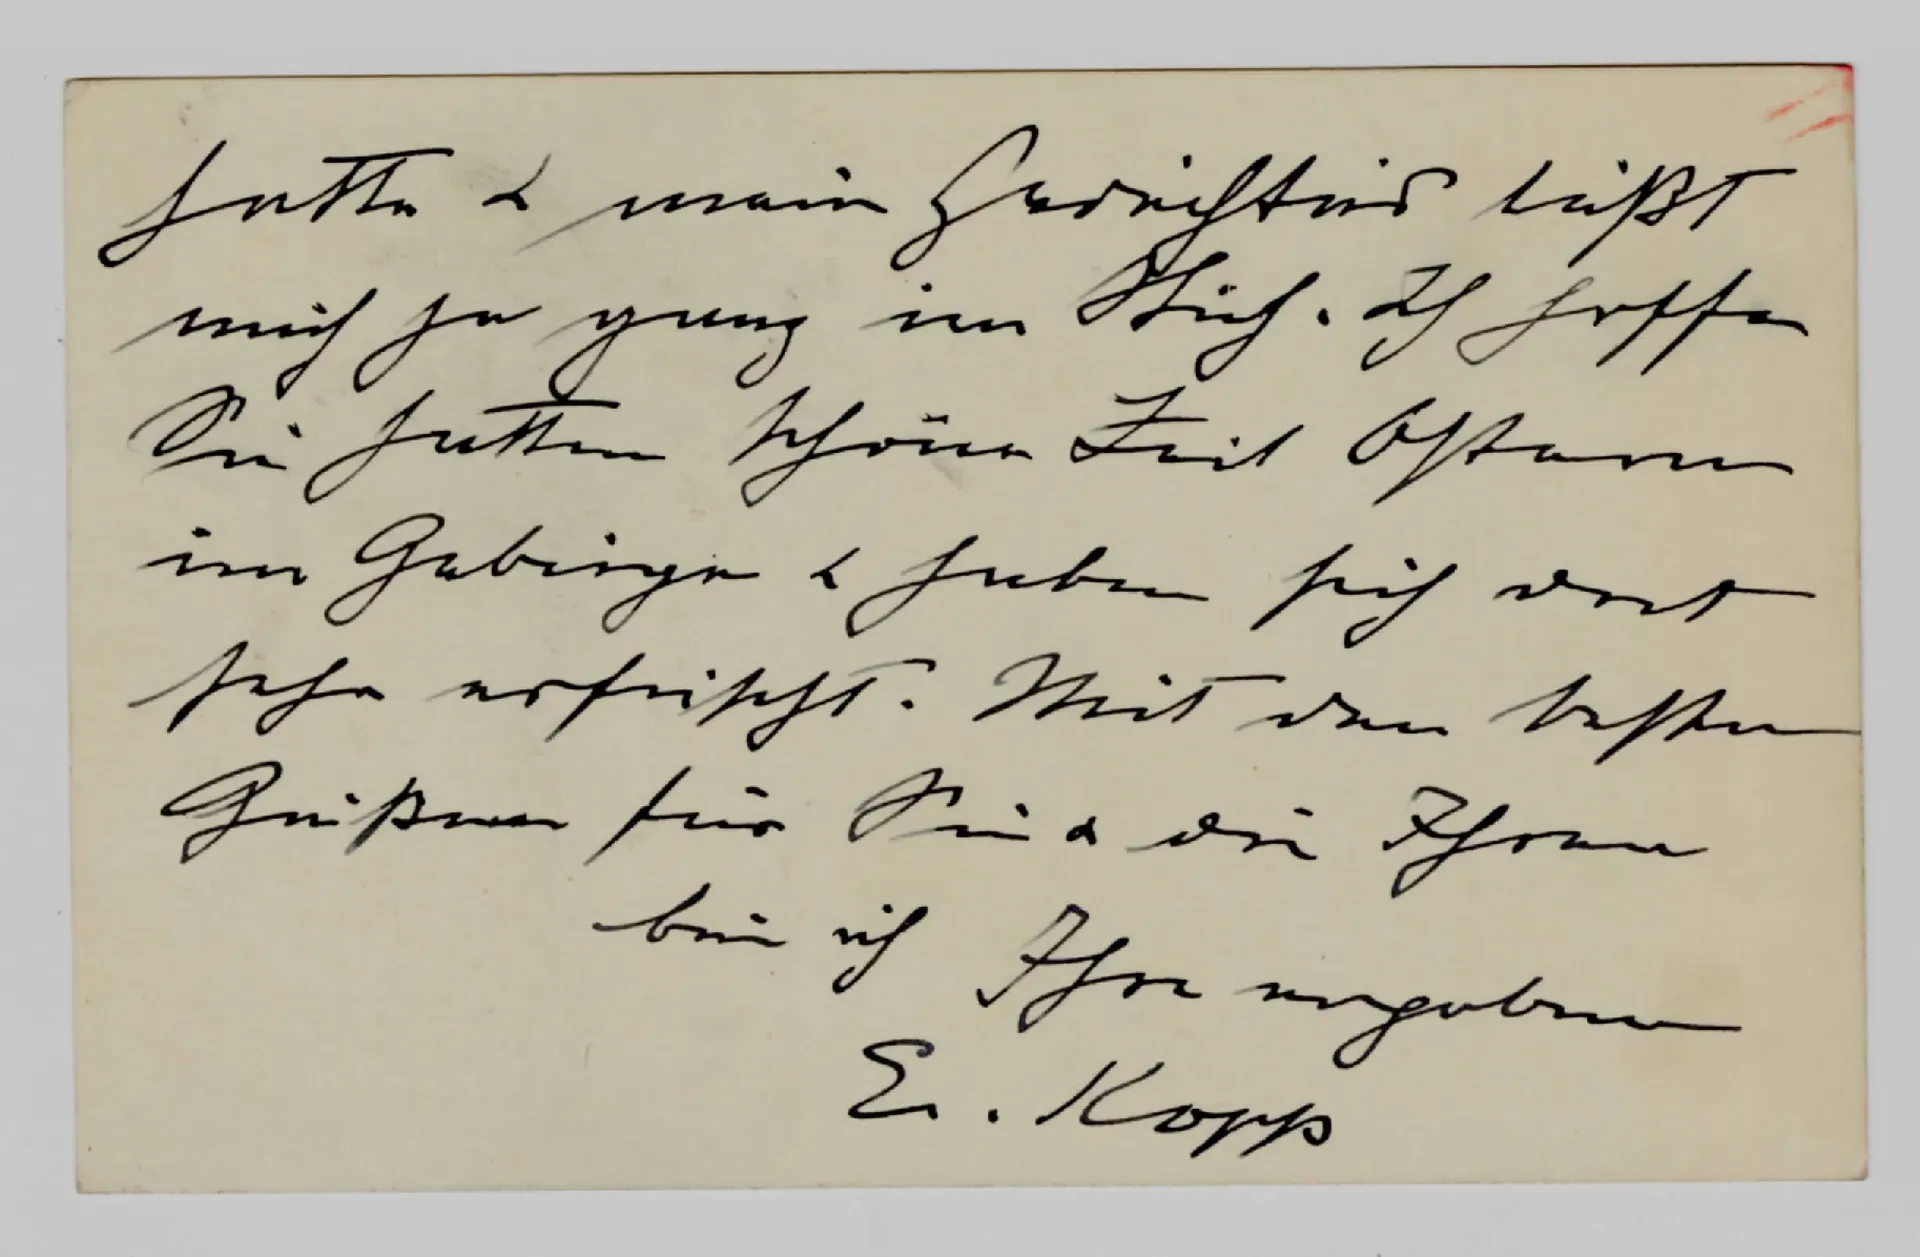 hatte & mein Gedächtnis läßt
mich ja ganz im Stich. Ich hoffe
Sie hatten schöne Zeit Ostern
im Gebirge & haben sich dort
sehr erfrischt. Mit den besten
Grüßen für Sie & die Ihren
bin ich Ihre ergebene
E. Kopp